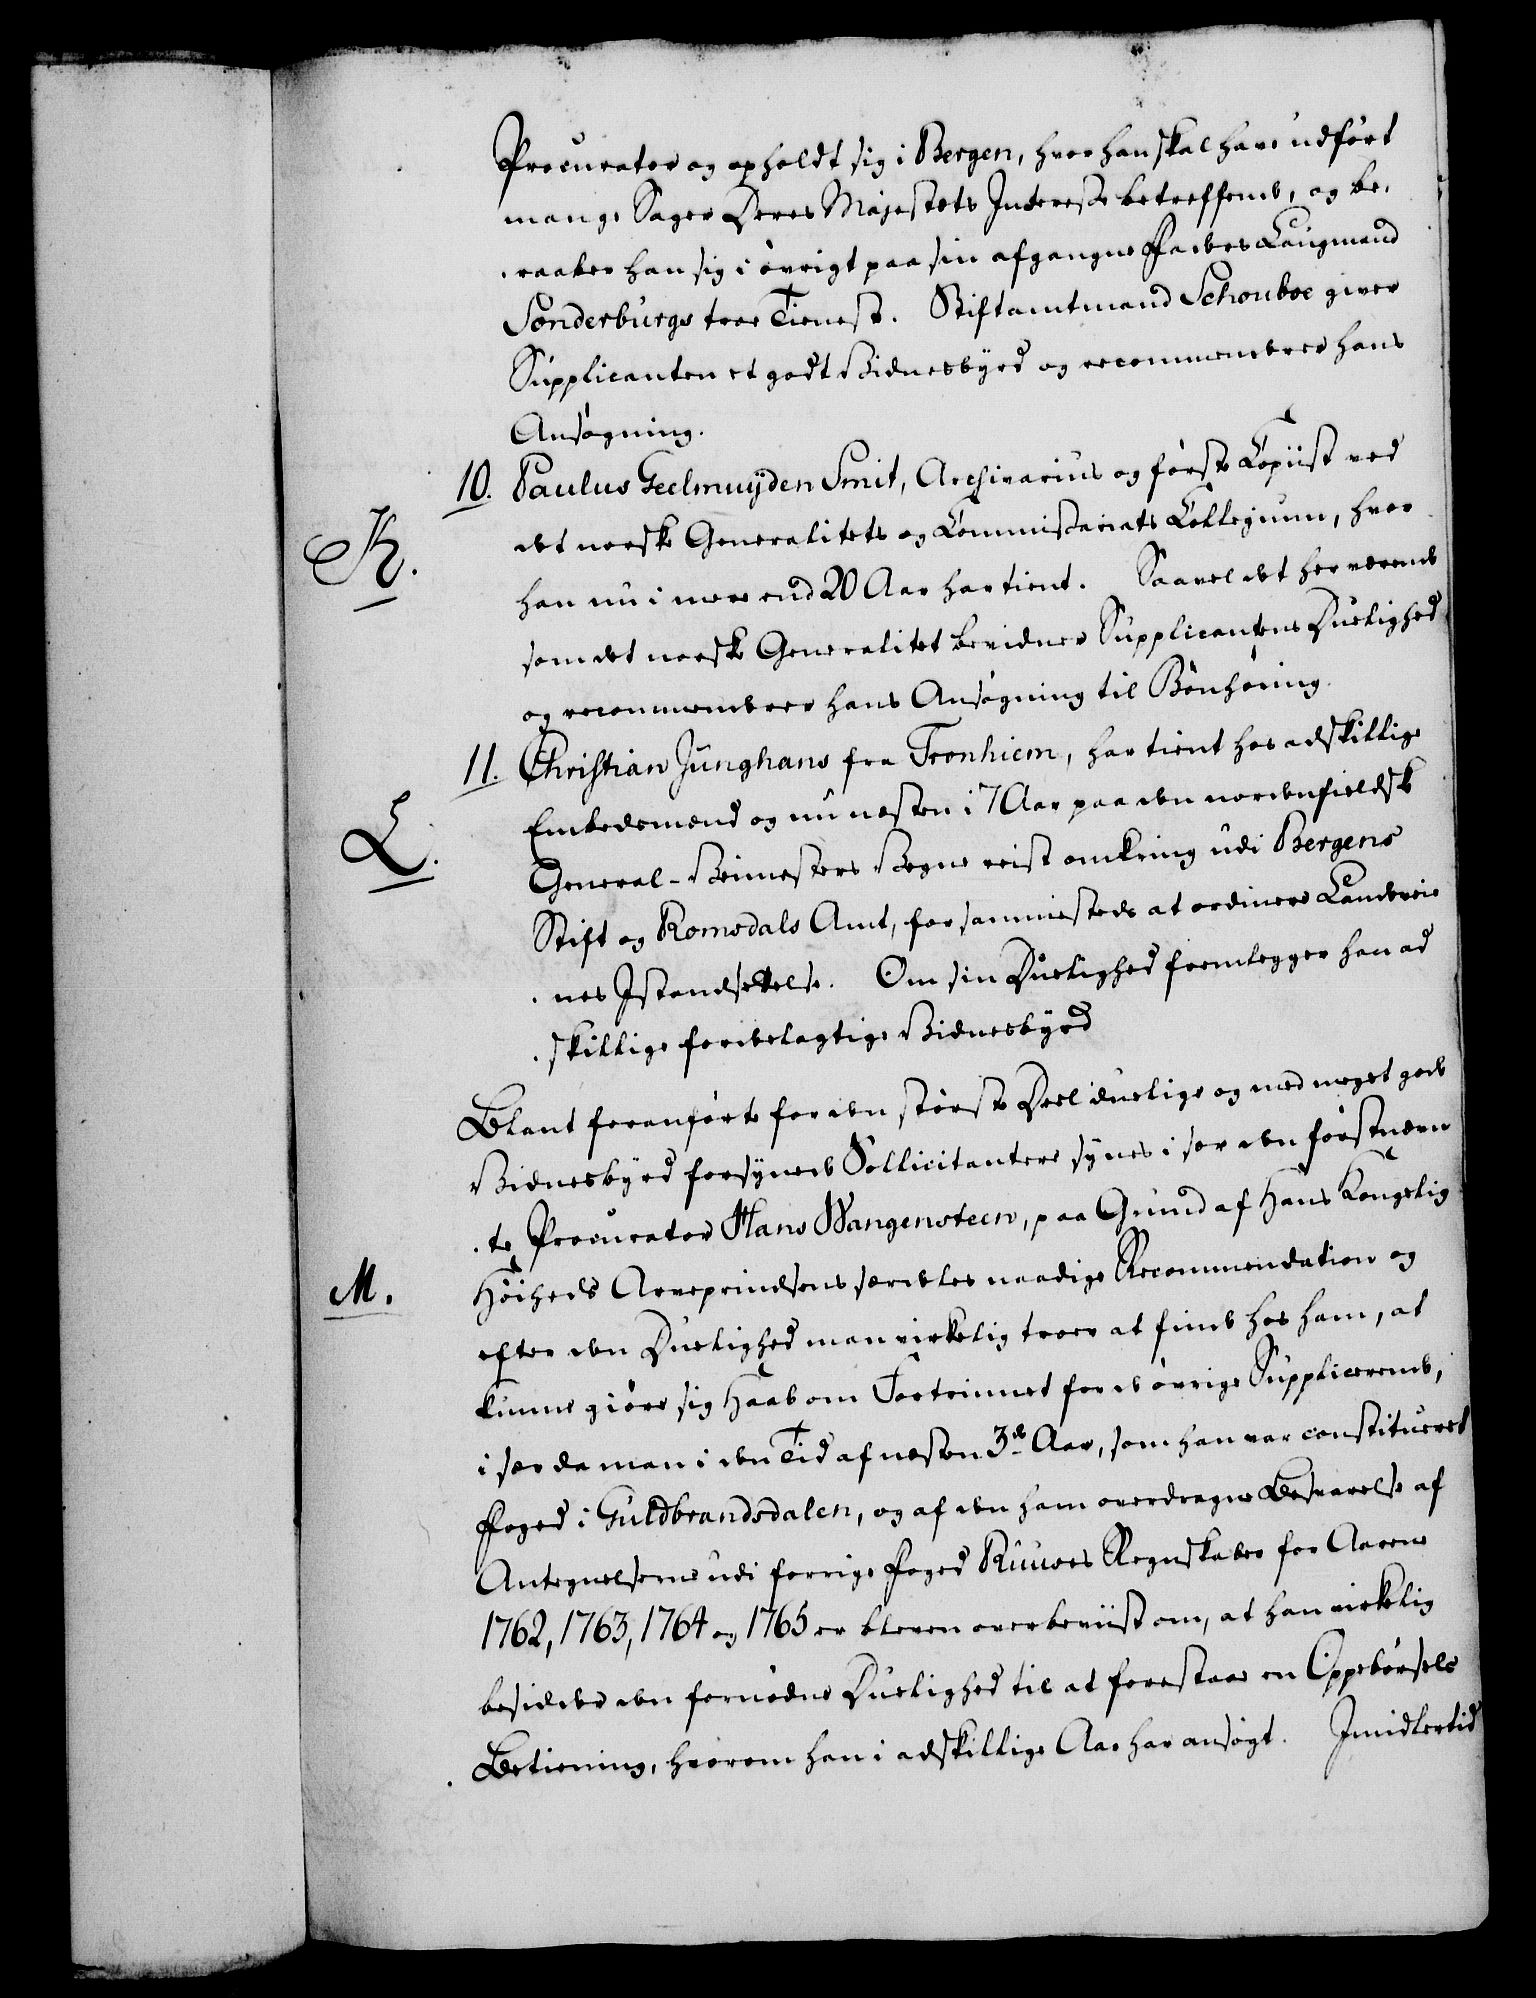 Procurator og opholdt sig i Bergen, hvor han skal have udført
mange Sager Deres Majestets Interesse betreffende, og be-
raaber han sig i øvrigt paa sin afgangne Fader Laugmand
Sønderburgs troe Tieneste. Stiftamtmand Schouboe giver
Supplicanten et godt Vidnesbyrd og recommenderer hans
Ansøgning.
10. Paulus Geelmuyden Smit, Archivarius og første Copiist ved
det norske Generalitets og Commissariats Collegium, hvor
K.
han nu i mere end 20 Aar har tient. Saavel det herværende
som det norske Generalitet bevidner Supplicantens Duelighed
og recommenderer hans Ansøgning til Bønhøring.
11. Christian Junghans fra Tronhiem, har tient hos adskillige
Embedsmænd og nu næsten i 7 Aar paa den nordenfieldske
L.
General-Veimesters Vegne reist omkring udi Bergens
Stift og Romsdals Amt, for sammesteds at ordinere Landveie
nes Istandsettelse. Om sin Duelighed fremlegger han ad
skillige fordelagtige Vidnesbyrd
Blant foranførte for den største Deel duelige og med meget gode
Vidnesbyrd forsynede Sollicitantere synes i sær den førstnævn
te Procurator Hans Wangensteen, paa Grund af Hans Kongelig
M.
Høiheds Arveprindsens særdeles naadige Recommendation og
efter den Duelighed man virkelig troer at finde hos ham, at
kunne giøre sig Haab om Fortrinnet for de øvrige Supplicerende,
i sær da man i den Tid af næsten 3de Aar, som han var constitueret
Foged i Guldbrandsdalen, og af den ham overdragne Besvarelse af
Antegnelserne udi forrige Foged Ruuves Regnskaber for Aarene
1762, 1763, 1764 og 1765 er bleven overbeviist om, at han virkelig
besidder den fornødne Duelighed til at forestaae en Oppebørsels
Betiening, hvorom han i adskillige Aar har ansøgt. Imidlertid